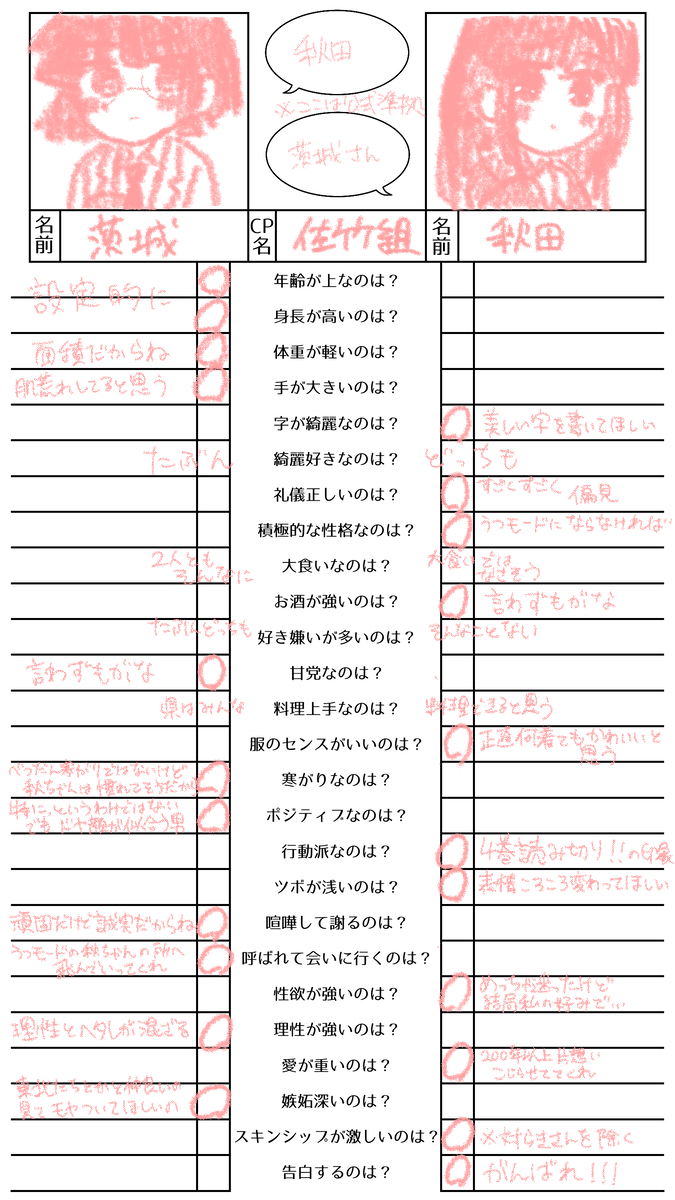 秋田
※ここは公式準拠
茨城さん
名前
茨城
CP名
佐竹組
名前
秋田
設定的に
年齢が上なのは?
身長が高いのは?
面積だからね
体重が軽いのは?
肌荒れしてると思う
手が大きいのは?
字が綺麗なのは?
美しい字を書いてほしい
たぶん
綺麗好きなのは?
どっちも
礼儀正しいのは?
すごくすごく偏見
積極的な性格なのは?
うつモードにならなければ
2人とも
そんなに
大食いなのは?
大食いでは
なさそう
お酒が強いのは?
言わずもがな
たぶんどっちも
好き嫌いが多いのは?
そんなことない
言わずもがな
甘党なのは?
県はみんな
料理上手なのは?
料理できると思う
服のセンスがいいのは?
正直何着てもかわいいと
思う
べつだん寒がりではないけど
秋ちゃんは慣れてそうだから
寒がりなのは?
特に、というわけではない
でもドヤ顔が似合う男
ポジティブなのは?
行動派なのは?
4巻読み切り!!の印象
ツボが浅いのは?
表情ころころ変わってほしい
頑固だけど誠実だからね
喧嘩して謝るのは?
うつモードの秋ちゃんの所へ
飛んでいってくれ
呼ばれて会いに行くのは?
性欲が強いのは?
めっちゃ迷ったけど
結局私の好みで…
理性とヘタレが混ざる
理性が強いのは?
愛が重いのは?
200年以上片想い
こじらせててくれ
東北たちとかと仲良いの
見てモヤついてほしいの
嫉妬深いのは?
スキンシップが激しいのは?
※対らきさんを除く
告白するのは?
がんばれ!!!